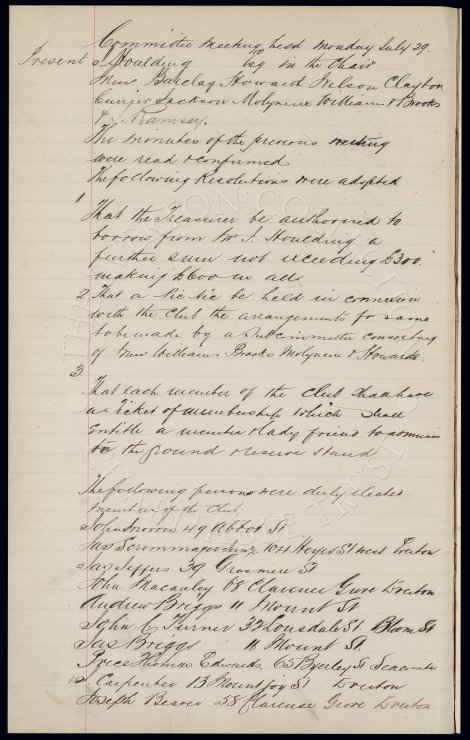 Committee Meeting held Monday July 29.
Present J Houlding Esq in the Chair
Messrs Barclay Howard Wilson Clayton
Currier Jackson Molyneux Williams & Brooks
& J. Ramsey.
The minutes of the previous meeting
were read & confirmed
The following Resolutions were adopted
1
That the Treasurer be authorised to
borrow from Mr J. Houlding a
further sum not exceeding £300.
making £600 in all.
2 That a Pic Nic be held in connexion
with the Club the arrangements for same
to be made by a Subcommittee consisting
of Messrs Williams Brooks Molyneux & Howard.
3
That each member of the Club shall have
a Ticket of membership which shall
entitle a member & lady friend to admission
to the ground & reserve stand
The following persons were duly elected
members of the Club.
John 49 Abbot St.
Jas Scrimmager Junr 104 Heyes St West Everton
Jas Jeffers 39 Grasmere St
John Macauley 68 Clarence Grove Everton
Andrew Briggs 11 Mount St
John C. Turner 32 Lonsdale St Bloom St
Jas Briggs 11 Mount St.
Price Thomas Edwards 65 Byerley St Seacombe
Carpenter 13 Mountjoy St Everton
Joseph Beaver 58 Clarence Grove Everton